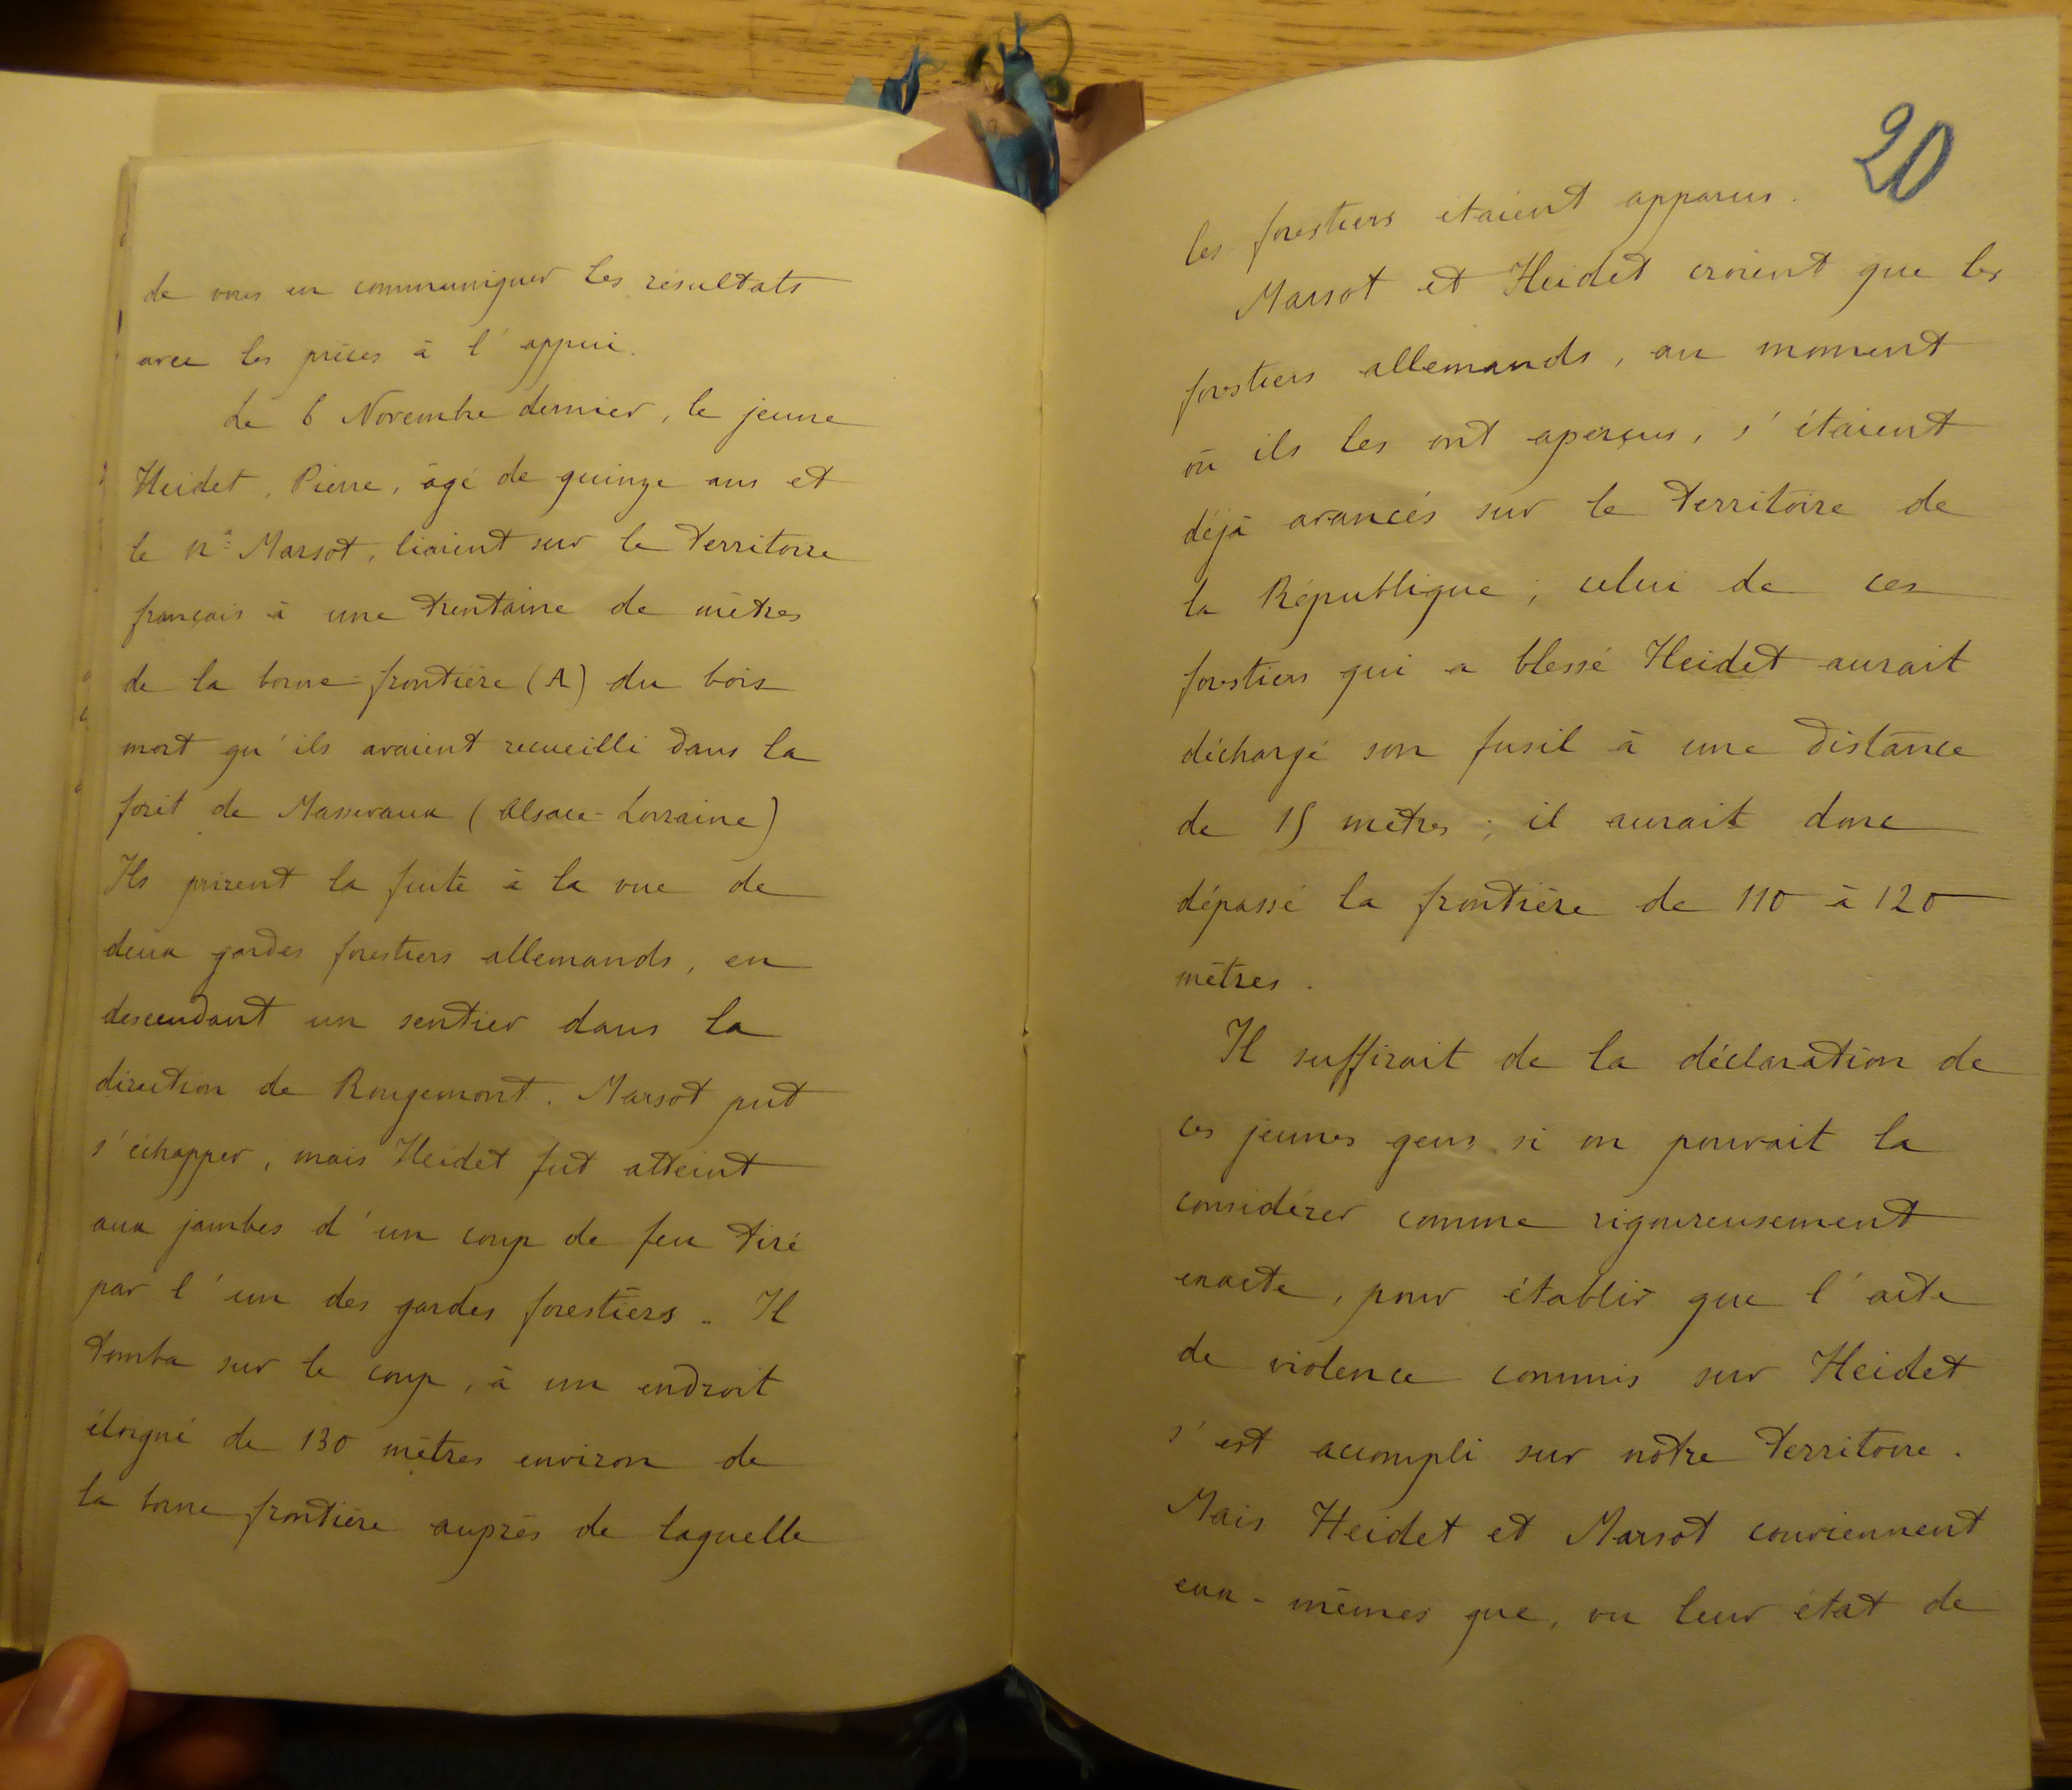 de vous en communiquer les résultats
avec les pièces à l'appui.
Le 6 Novembre dernier, le jeune
Heidet, Pierre, âgé de quinze ans et
le Marsot, liaient sur le territoire
français à une trentaine de mètres
de la borne-frontière (A) du bois
mort qu'ils avaient recueilli dans la
forêt de Massevaux (Alsace-Lorraine)
Ils prirent la fuite à la vue de
deux gardes forestiers allemands, en
descendant un sentier dans la
direction de Rougemont. Marsot put
s'échapper, mais Heidet fut atteint
aux jambes d'un coup de feu tiré
par l'un des gardes forestiers. Il
tomba sur le coup, à un endroit
éloigné de 130 mètres environ de
la borne frontière auprès de laquelle
20
les forestiers étaient apparus.
Marsot et Heidet croient que les
forestiers allemands, au moment
où ils les ont aperçus, s'étaient
déjà avancés sur le territoire de
la République; celui de ces
forestiers qui a blessé Heidet aurait
déchargé son fusil à une distance
de 15 mètres; il aurait donc
dépassé la frontière de 110 à 120
mètres.
Il suffirait de la déclaration de
ces jeunes gens, si on pouvait la
considérer comme rigoureusement
exacte, pour établir que l'acte
de violence commis sur Heidet
s'est accompli sur notre territoire.
Mais Heidet et Marsot conviennent
eux-mêmes que, vu leur état de